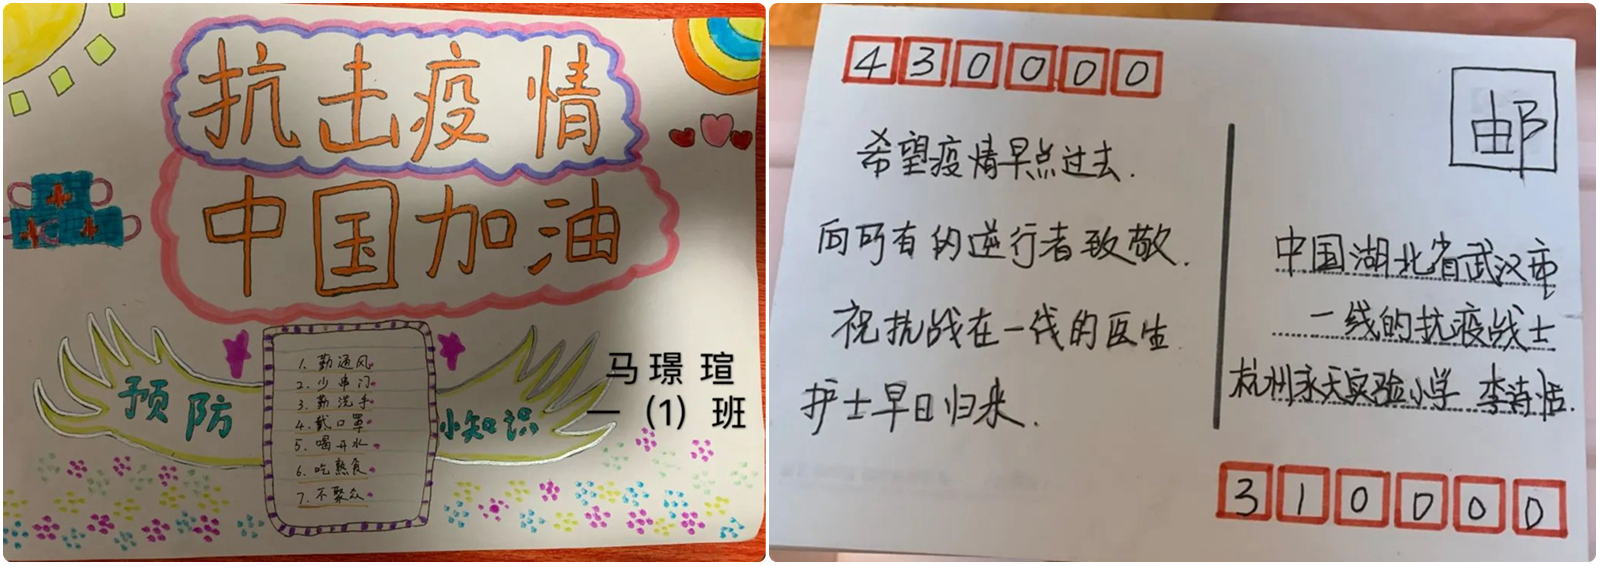 抗击疫情
中国加油
预防
1. 勤通风
2. 少串门
3. 勤洗手
4. 戴口罩
5. 喝开水
6. 吃熟食
7. 不聚众
小知识
马璟瑄
一（1）班
430000
邮
希望疫情早点过去.
向所有的逆行者致敬.
祝抗战在一线的医生
护士早日归来.
中国湖北省武汉市
一线的抗疫战士
杭州永天实验小学 李诗恬.
310000